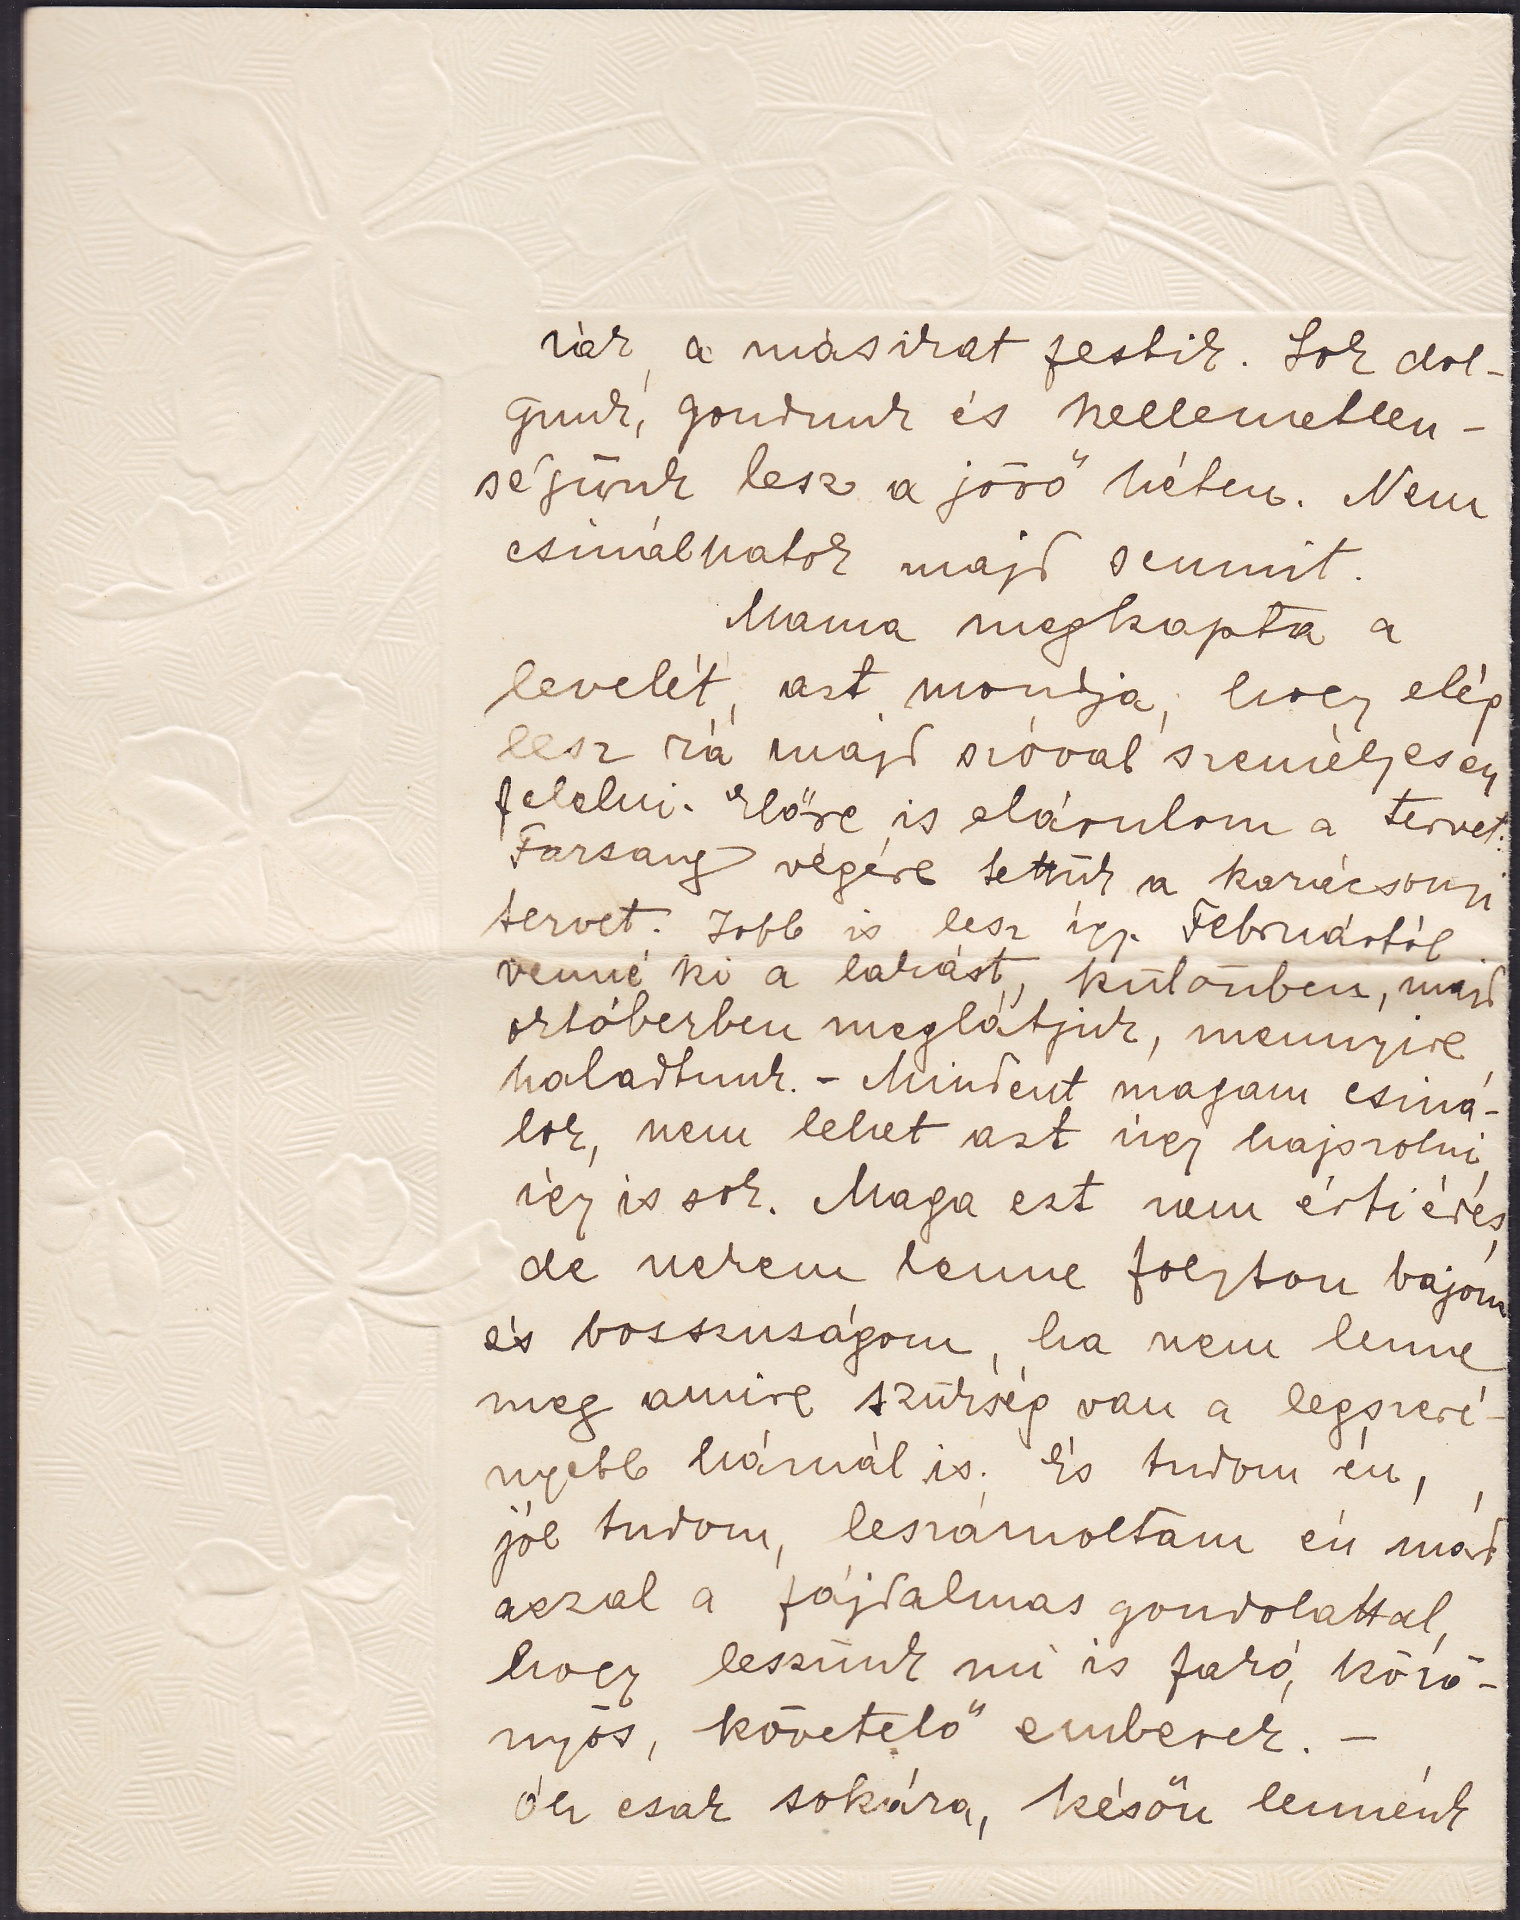 ják, a másikat festik. Sok dol-
gunk, gondunk és kellemetlen-
ségünk lesz a jövő héten. Nem
csinálhatok majd semmit.
Mama megkapta a
levelét, azt mondja, hogy elég
lesz rá majd szóval személyesen
felelni. Előre is elárulom a tervet:
Farsang végére tettük a karácsonyi
tervet. Jobb is lesz így. Februártól
venné ki a lakást, különben, majd
októberben meglátjuk, mennyire
haladtunk. - Mindent magam csiná-
lok, nem lehet azt úgy hajszolni,
így is sok. Maga ezt nem érti édes,
de nekem lenne folyton bajom
és bosszuságom, ha nem lenne
meg amire szükség van a legszeré-
nyebb háznál is. És tudom én,
jól tudom, leszámoltam én már
azzal a fájdalmas gondolattal,
hogy leszünk mi is fakó, közö-
nyös, követelő emberek. -
Óh csak sokára, későn lennénk